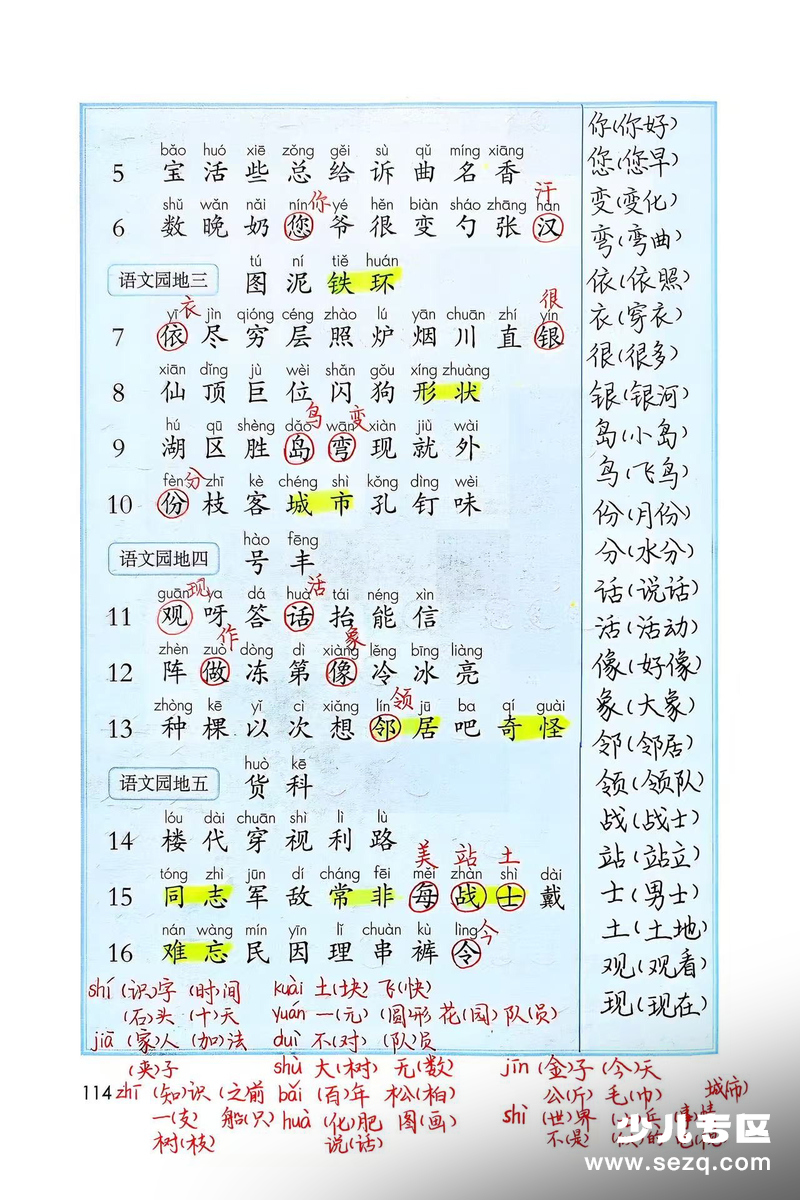 bǎo huó xiē zǒng gěi sù qǔ míng xiāng
5 宝 活 些 总 给 诉 曲 名 香
你 汗
shǔ wǎn nǎi nín yé hěn biàn sháo zhāng hàn
6 数 晚 奶 您 爷 很 变 勺 张 汉
tú ní tiě huán
语文园地三 图 泥 铁 环
衣 很
yī jìn qióng céng zhào lú yān chuān zhí yín
7 依 尽 穷 层 照 炉 烟 川 直 银
xiān dǐng jù wèi shǎn gǒu xíng zhuàng
8 仙 顶 巨 位 闪 狗 形 状
鸟 变
hú qū shèng dǎo wān xiàn jiù wài
9 湖 区 胜 岛 弯 现 就 外
分
fèn zhī kè chéng shì kǒng dìng wèi
10 份 枝 客 城 市 孔 钉 味
hào fēng
语文园地四 号 丰
现 活
guān ya dá huà tái néng xìn
11 观 呀 答 话 抬 能 信
作 象
zhèn zuò dòng dì xiàng lěng bīng liàng
12 阵 做 冻 第 像 冷 冰 亮
领
zhòng kē yǐ cì xiǎng lín jū ba qí guài
13 种 棵 以 次 想 邻 居 吧 奇 怪
huò kē
语文园地五 货 科
lóu dài chuān shì lì lù
14 楼 代 穿 视 利 路
美 站 土
tóng zhì jūn dí cháng fēi měi zhàn shì dài
15 同 志 军 敌 常 非 每 战 士 戴
今
nán wàng mín yīn lǐ chuàn kù lìng
16 难 忘 民 因 理 串 裤 令
你(你好)
您(您早)
变(变化)
弯(弯曲)
依(依照)
衣(穿衣)
很(很多)
银(银河)
岛(小岛)
鸟(飞鸟)
份(月份)
分(水分)
话(说话)
活(活动)
像(好像)
象(大象)
邻(邻居)
领(领队)
战(战士)
站(站立)
士(男士)
土(土地)
观(观看)
现(现在)
shí (识)字 (时)间 kuài 土(块) 飞(快)
(石)头 (十)天 yuán 一(元) (圆)形 花(园) 队(员)
jiā (家)人 (加)法 duì 不(对) (队)员
(夹)子 shù 大(树) 无(数) jīn (金)子 (今)天
114 zhī (知)识 (之)前 bǎi (百)年 松(柏) 公(斤) 毛(巾) 城(市)
一(支) 船(只) huà (化)肥 图(画) shì (世)界 事情
树(枝) 说(话) 不(是)
少儿专区
www.sezq.com